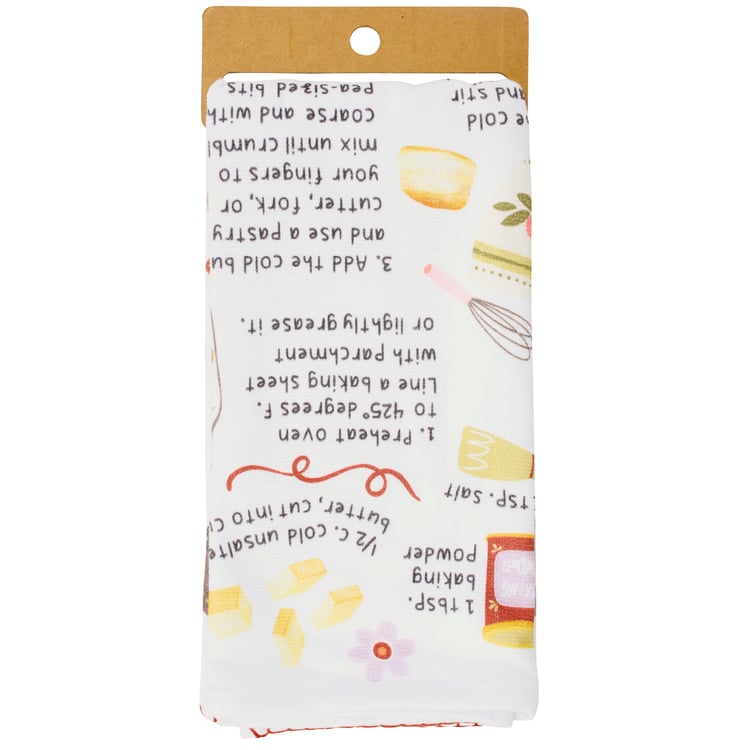 1 tbsp.
baking
powder
BAKING
1/2 c. cold unsalte
butter, cut into c
TSP. salt
1. Preheat oven
to 425° degrees F.
Line a baking sheet
with parchment
or lightly grease it.
3. Add the cold bu
and use a pastry
cutter, fork, or
your fingers to
mix until crumbl
coarse and with
pea-sized bits
he cold
and stir